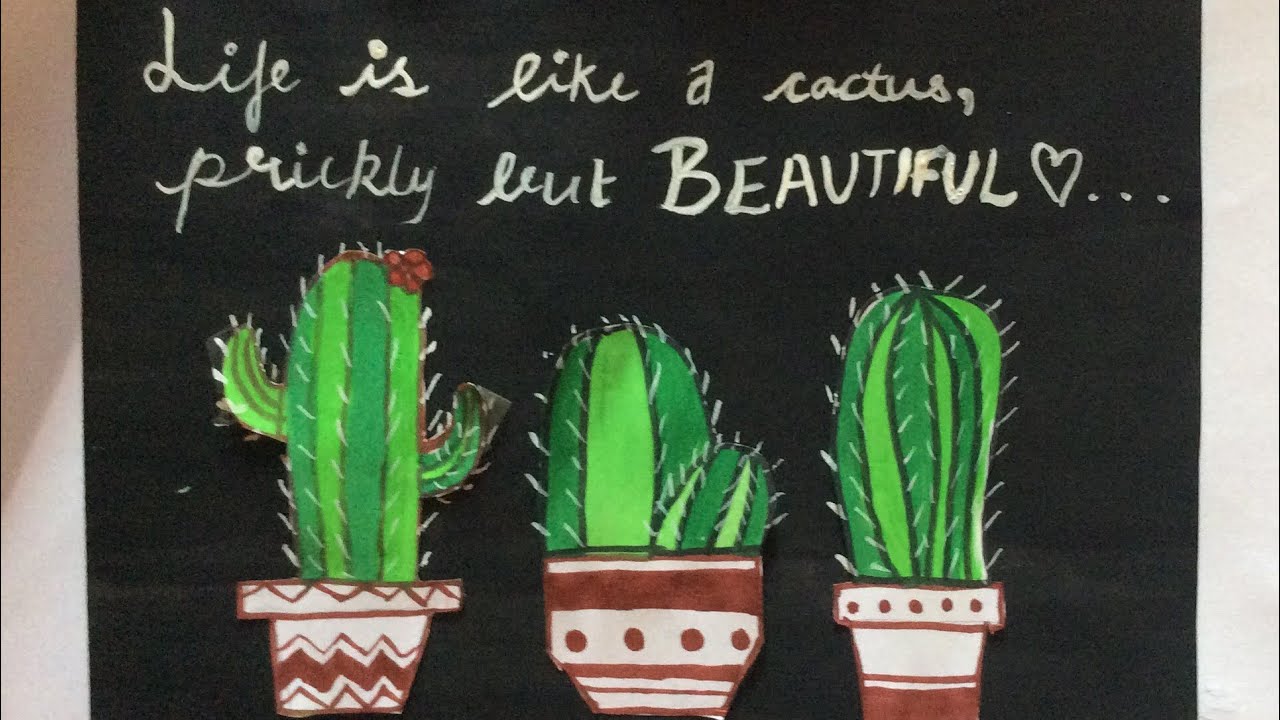 Life is like a cactus,
prickly but BEAUTIFUL ♡....